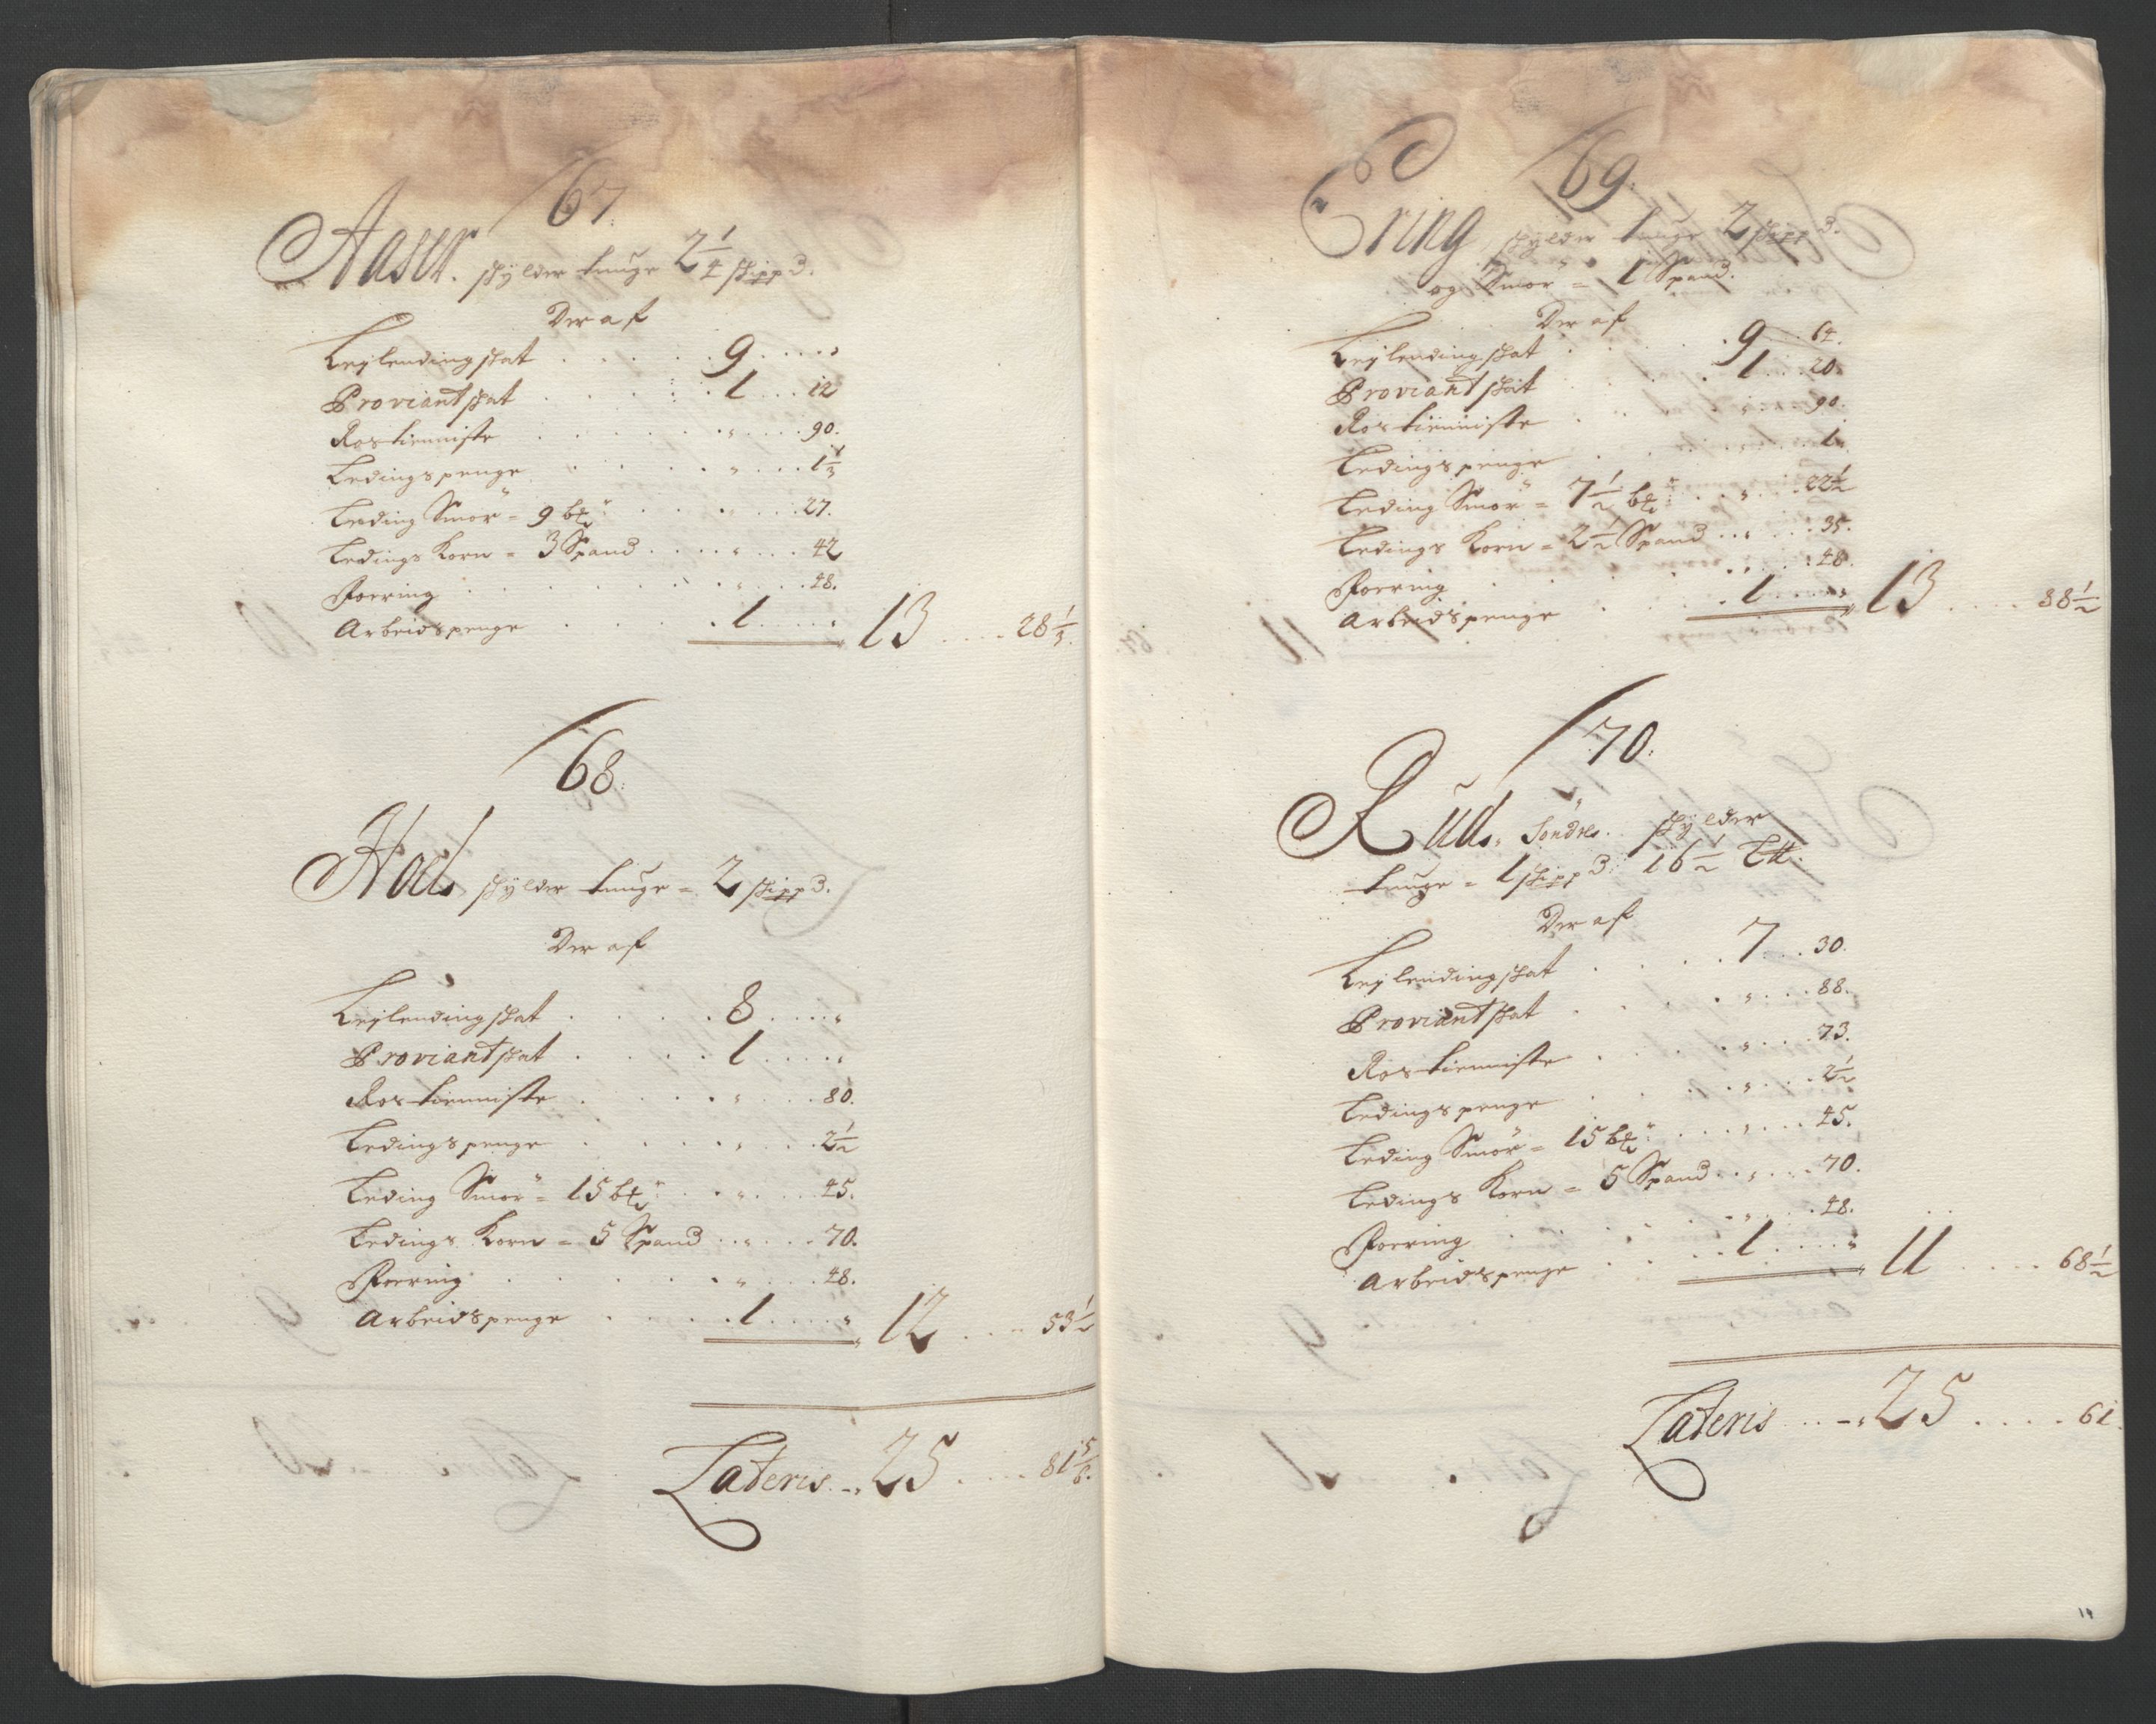 67.
Aaser. skylder tunge 2 1/4 skippd.
Der af
Leylendingskat . . . . . 9 . . . . "
Proviantskat . . . . . 1 . . . 12
Rostienniste . . . . . " . . . 90.
Ledingspenge . . . . . " . . . 1 1/3
Leding Smör = 9 bt. . . . . 27.
Ledings Korn = 3 Spand . . . . " . . . 42
Foering . . . . . " . . . 48.
Arbeidspenge . . . . . 1 . . . . " 13 . . . . 28 1/3.
68.
Hoel skylder tunge = 2 skippd.
Der af
Leylendingskat . . . . . 8 . . . . "
Proviantskat . . . . . 1 . . . . "
Rostienniste . . . . . " . . . 80.
Ledingspenge . . . . . " . . . 2 1/2
Leding Smör = 15 bt. . . . " . . . 45.
Ledings Korn = 5 Spand . . " . . . 70.
Foering . . . . . " . . . 48.
Arbeidspenge . . . . . 1 . . . . " 12 . . . . 53 1/2
Lateris . . 25 . . . . 81 5/6.
69.
Ering skylder tunge 2 skippd.
og Smör = 1 Spand.
Der af
Leylendingskat . . . . . 9 . . . 64.
Proviantskat . . . . . 1 . . . 20.
Rostienniste . . . . . " . . . 90.
Ledingspenge . . . . . 1.
Leding Smör = 7 1/2 bt. . . " . . . 22 1/2
Ledings Korn = 2 1/2 Spand . . " . . . 35.
Foering . . . . . 48.
Arbeidspenge . . . . . 1 . . . . " 13 . . . . 88 1/2
70.
Rud. Söndre. skylder
tunge = 1 skippd: 16 1/2 L℔.
Der af
Leylendingskat . . . . . 7 . . . 30.
Proviantskat . . . . . " . . . 88.
Rostienniste . . . . . " . . . 73.
Ledingspenge . . . . . " . . . 2 1/2
Leding Smör = 15 bt. . . . " . . . 45.
Ledings Korn = 5 Spand . . " . . . 70.
Foering . . . . . " . . . 48.
Arbeidspenge . . . . . 1 . . . . " 11 . . . . 68 1/2
Lateris . . 25 . . . . 61.
14